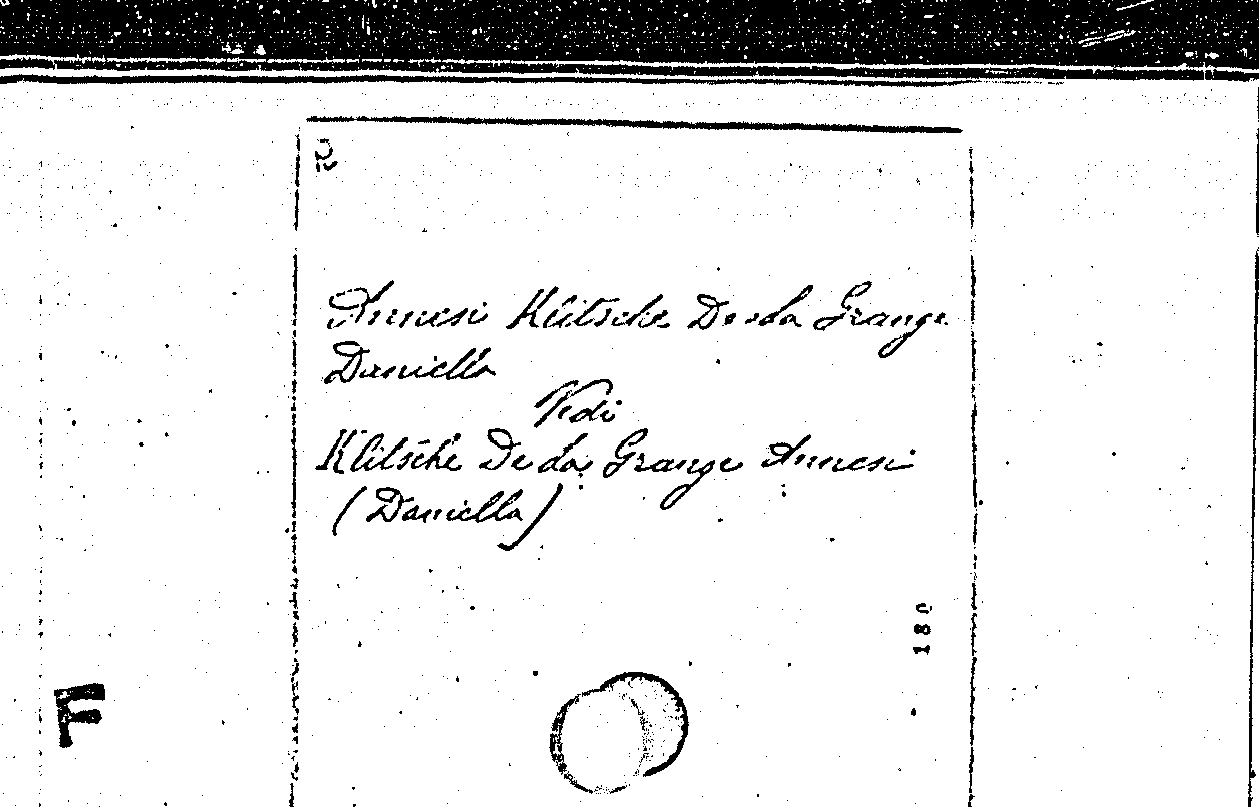 Annesi Klitsche De La Grange
Daniella
Vedi
Klitsche De La Grange Annesi
(Daniella)
180
F